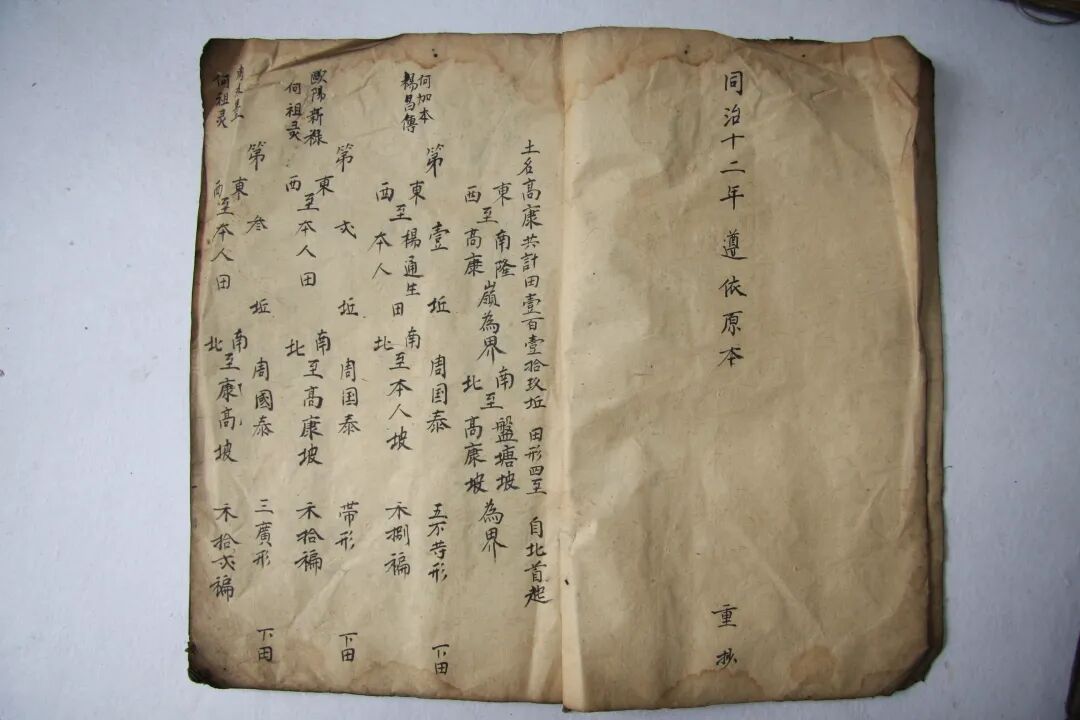 同治十二年 遵依原本 重抄
土名高康共計田壹百壹拾玖坵 田形四至 自北首起
東至南隆嶺為界 南至盤塘坡為界
西至高康 北高康坡
何加本
楊昌傳
第壹坵 周国泰 五不等形 下田
東至楊通生田 南至本人坡 禾捌稨
西本人 北
歐陽新祿
何祖灵
第弍坵 周国泰 帶形 下田
東至本人田 南至高康坡 禾拾稨
西 北
何祖灵
第叁坵 周國泰 三廣形 下田
東至本人田 南至康高坡 禾拾弍稨
西 北